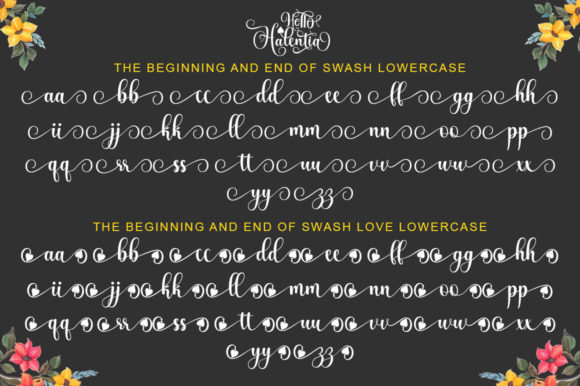 Hello
Halentia
THE BEGINNING AND END OF SWASH LOWERCASE
aa bb cc dd ee ff gg hh
ii jj kk ll mm nn oo pp
qq rr ss tt uu vv ww xx
yy zz
THE BEGINNING AND END OF SWASH LOVE LOWERCASE
aa bb cc dd ee ff gg hh
ii jj kk ll mm nn oo pp
qq rr ss tt uu vv ww xx
yy zz